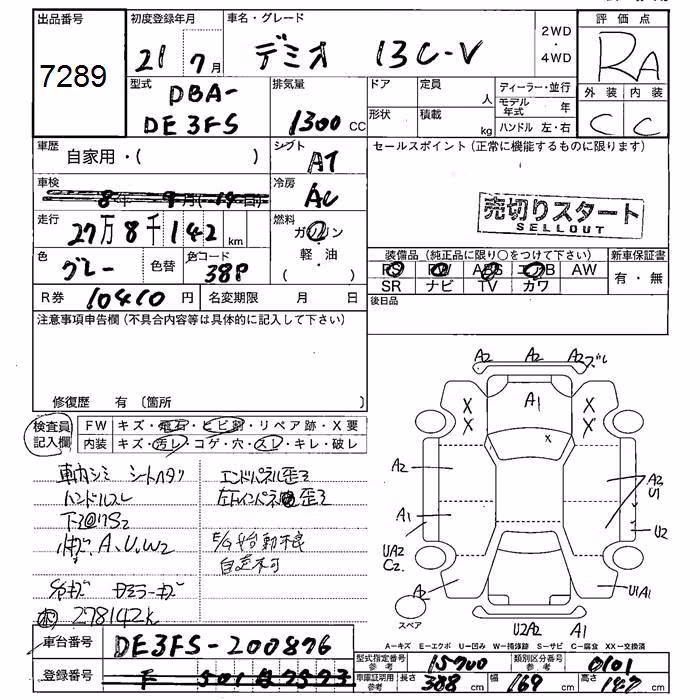 出品番号 初度登録年月 車名・グレード 2WD・4WD 評価点
7289 21 7月 デミオ 13C-V RA
型式 DBA-DE3FS 排気量 1300 CC
ドア 定員 人 ディーラー・並行 外装 内装
形状 積載 kg モデル年式 年 C C
ハンドル 左・右
車歴 自家用・( ) シフト AT セールスポイント(正常に機能するものに限ります)
車検 冷房 AC
売切りスタート
SELLOUT
走行 27万8千142 km 燃料 ガソリン
軽・油
( )
色 グレー 色替 色コード 38P
装備品(純正品に限り○をつけて下さい) 新車保証書
PS PW ABS エアB AW 有・無
SR ナビ TV カワ
R券 10410円 名変期限 月 日 後日品
注意事項申告欄(不具合内容等は具体的に記入して下さい)
修復歴 有 〔箇所 〕
A2 A2 A2
A1
X X
X X
x
A2 A2 U1
A1 U2
UA2 C2
A2 U1A1
スペア
U2A2 A1
検査員記入欄 FW キズ・飛石・ヒビ割・リペア跡・X要
内装 キズ・汚レ・コゲ・穴・スレ・キレ・破レ
エンドパネル歪ミ
ハンドルスレ
A、U、W2 E/G始動不良
自走不可
278142K
車台番号 DE3FS-200876
登録番号
A-キズ E-エクボ U-凹み W-補修跡 S-サビ C-腐食 XX-交換済
型式指定番号 参考 15700 類別区分番号 参考 0101
車庫証明用 参考 長さ 388 cm 幅 169 cm 高さ 147 cm